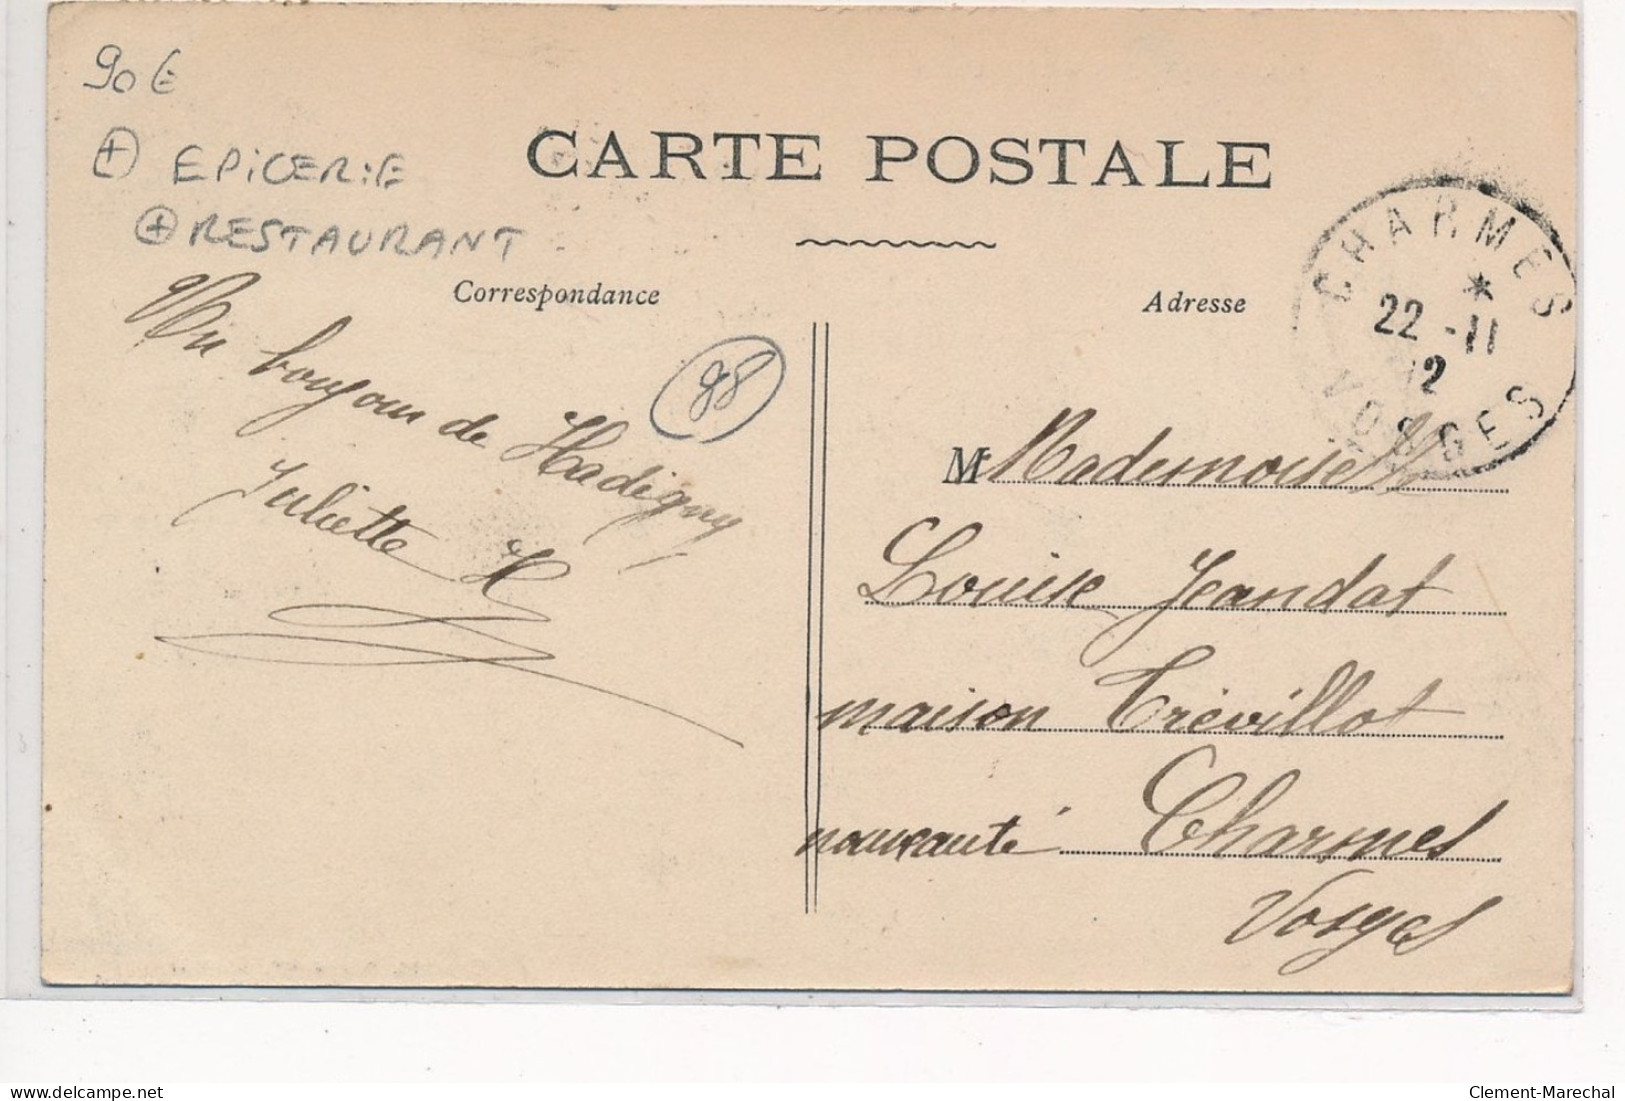 90 €
+ EPICERIE
+ RESTAURANT
CARTE POSTALE
Correspondance
Adresse
CHARMES
22 - 11
12
VOSGES
98
Un bonjour de Hadigny
Juliette H
M Mademoiselle
Louise Jeandat
maison Trévillot
nouveauté Charmes
Vosges
delcampe.net
Clement-Marechal